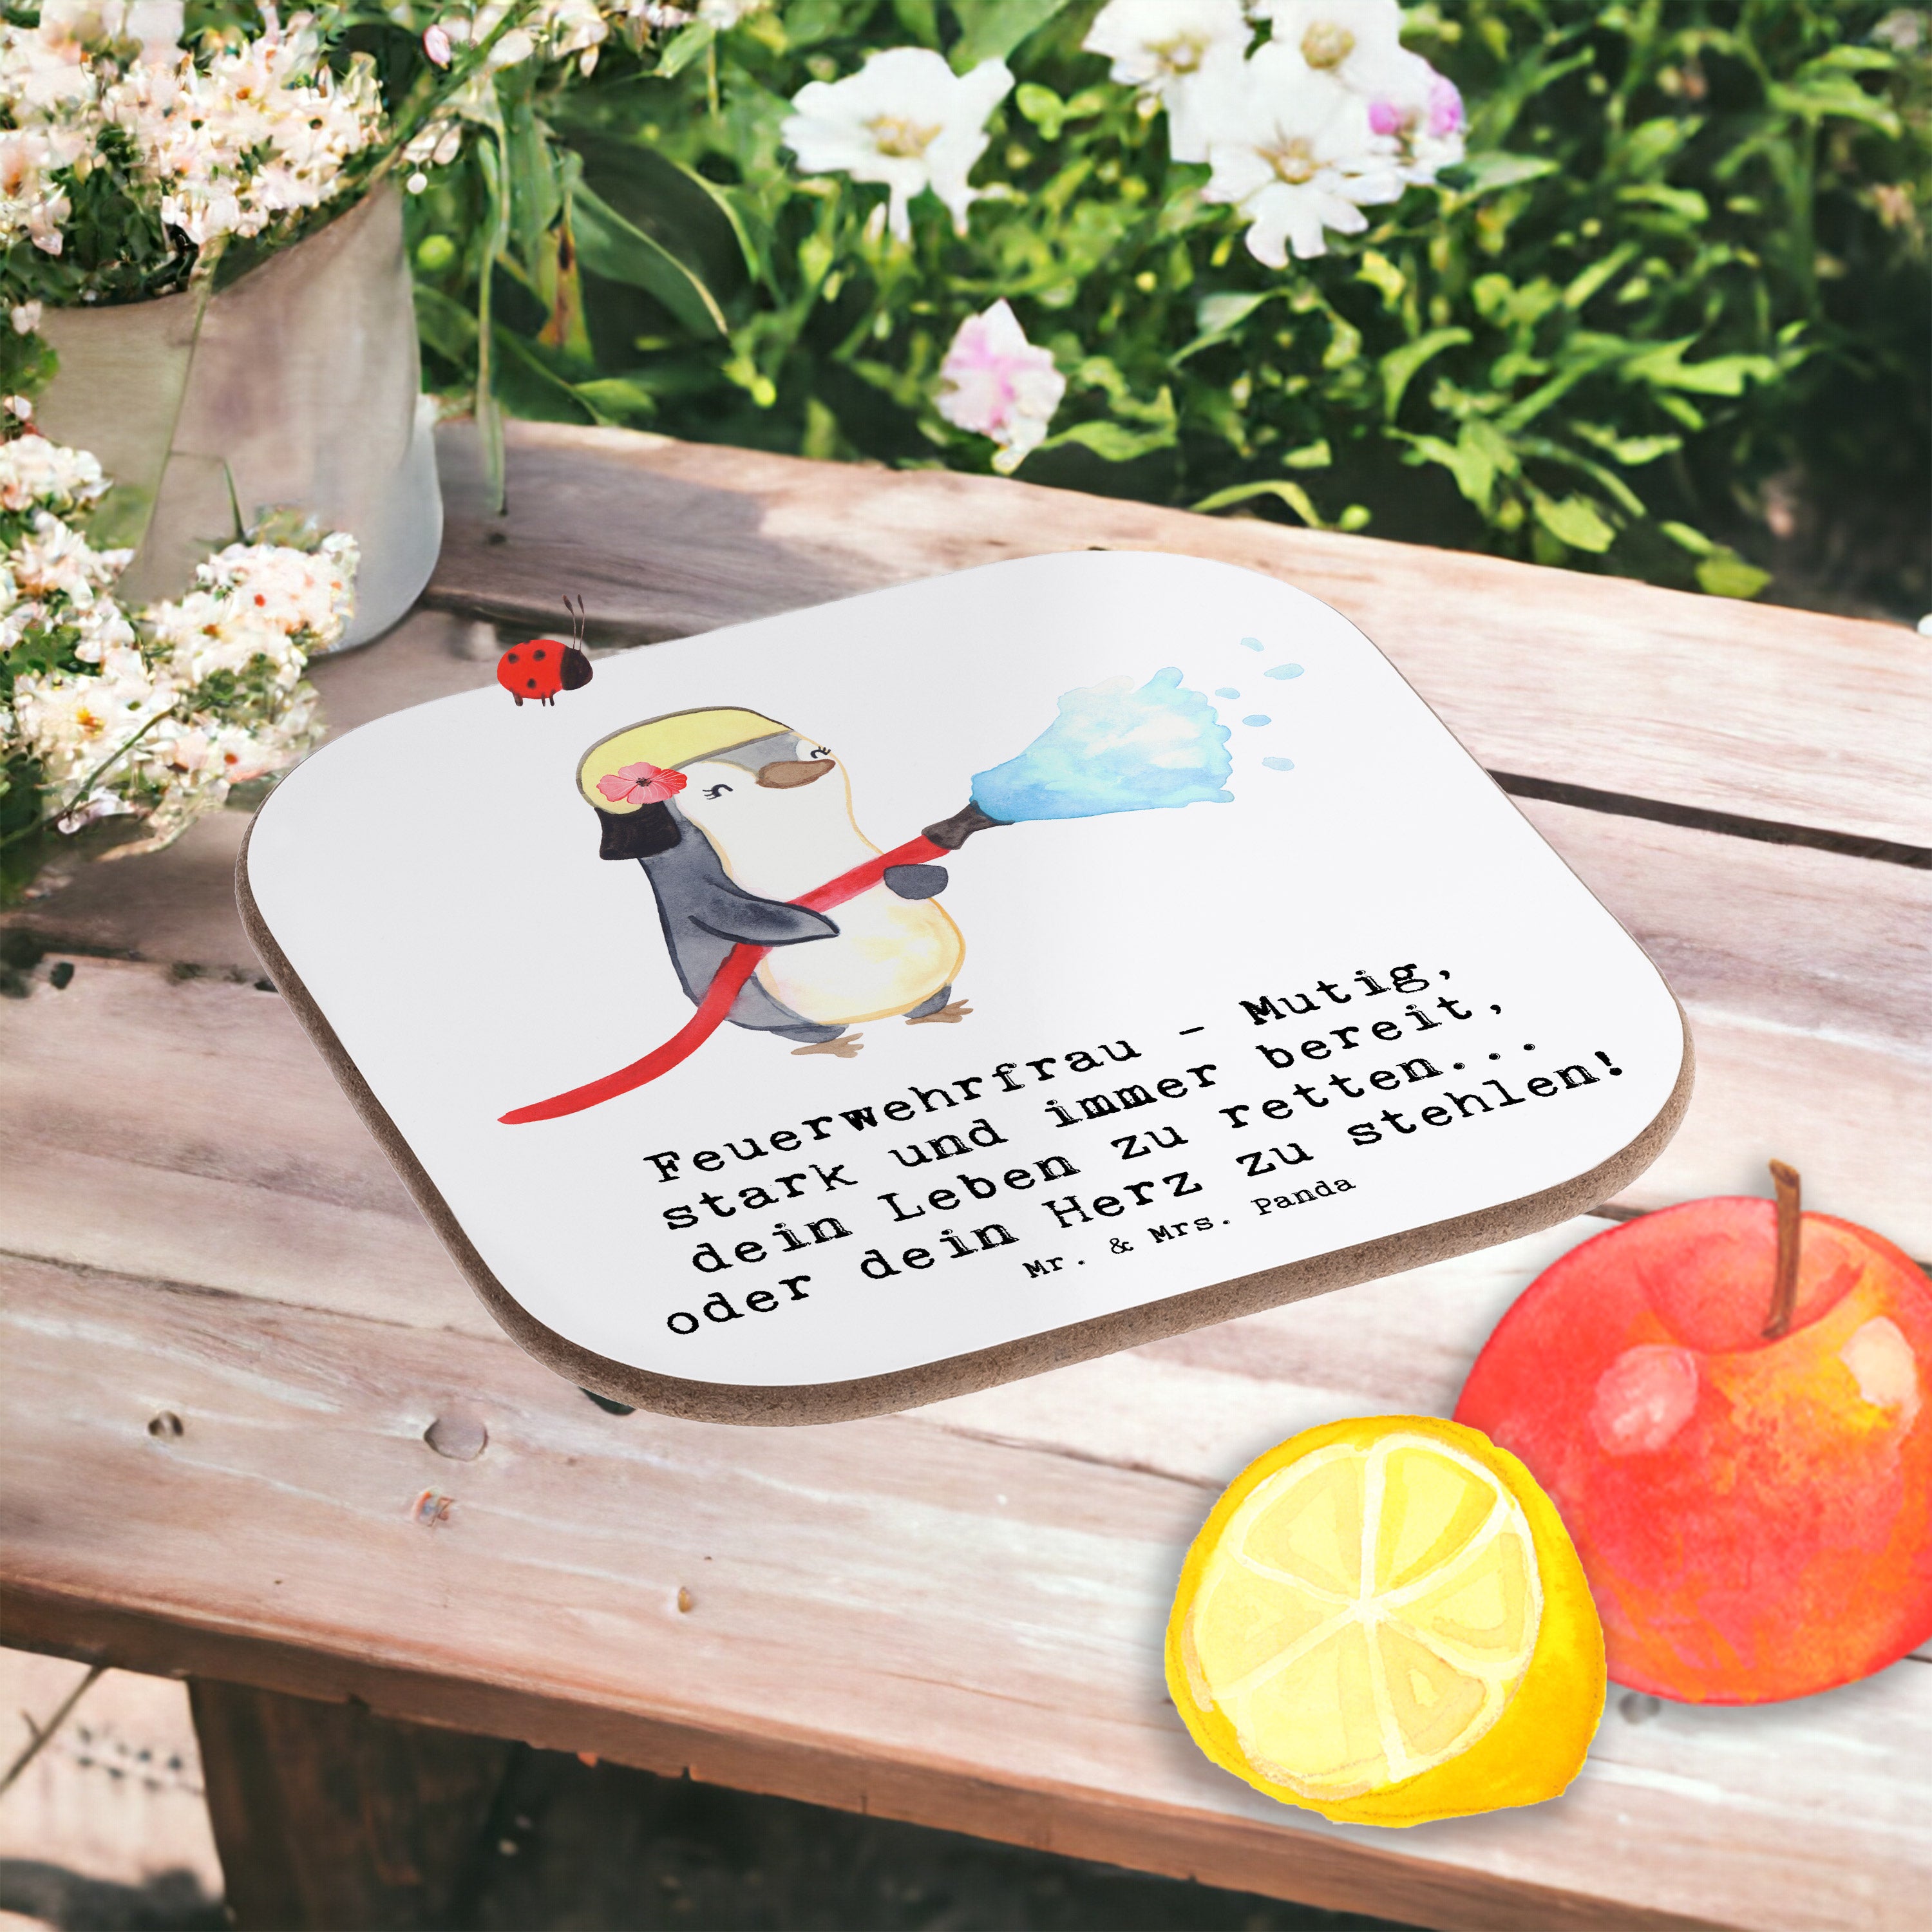 Feuerwehrfrau - Mutig,
stark und immer bereit,
dein Leben zu retten...
oder dein Herz zu stehlen!
Mr. & Mrs. Panda